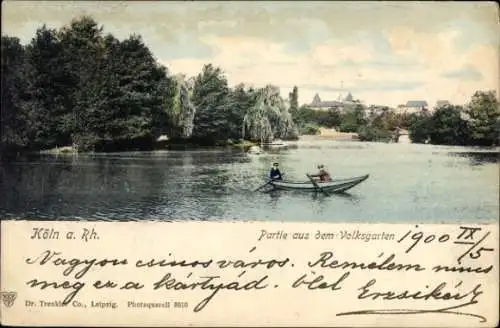 Köln a. Rh.
Partie aus dem Volksgarten
1900 IX/5
Nagyon csinos város. Remélem nincs
meg ez a kártyád. Ölel Erzsikéd
Dr. Trenkler Co., Leipzig. Photoaquarell 8010